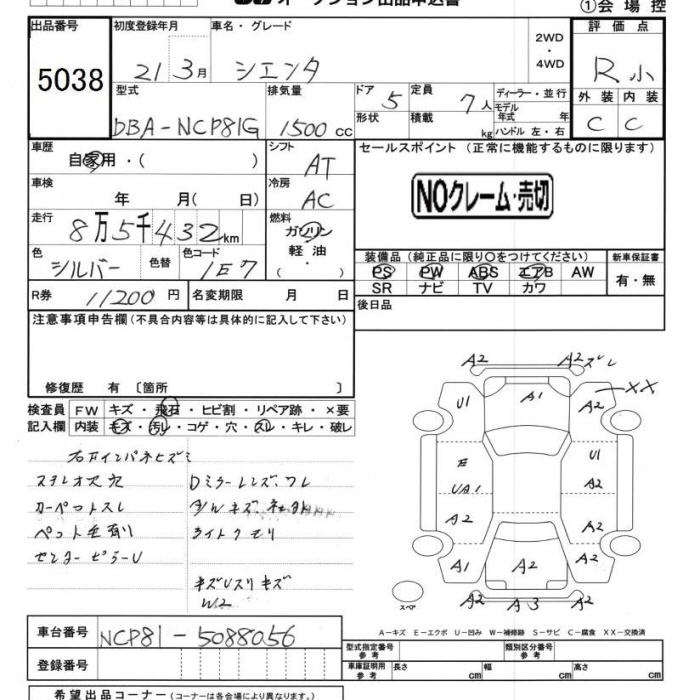 オークション出品申込書
①会場控
出品番号 初度登録年月 車名・グレード 2WD・4WD 評価点
5038 21 3月 シエンタ R小
型式 排気量 ドア 5 定員 7人 ディーラー・並行 外装 内装
DBA-NCP81G 1500cc 形状 積載 kg モデル年式 年 ハンドル 左・右 C C
車歴 自家用・( ) シフト AT セールスポイント (正常に機能するものに限ります)
車検 年 月( 日) 冷房 AC NOクレーム・売切
走行 8万5千432km 燃料 ガソリン 軽油
色 シルバー 色替 色コード 1E7 装備品 (純正品に限り○をつけてください) 新車保証書
PS PW ABS エアB AW 有・無
SR ナビ TV カワ
R券 11200円 名変期限 月 日 後日品
注意事項申告欄 (不具合内容等は具体的に記入して下さい)
修復歴 有 〔箇所 〕
検査員 FW キズ・飛石・ヒビ割・リペア跡・×要
記入欄 内装 キズ・汚レ・コゲ・穴・スレ・キレ・破レ
ステレオ欠穴 Dミラーレンズワレ
カーペットスレ
ペット毛有リ ライトクモリ
センターピラーU
キズUスリキズ
W2
A2 A2ズレ
U1 A1 A2 XX
E U1
UA1 A2
A2 A2
A1 A2 A2
A2 A3 A2
スペア
A-キズ E-エクボ U-凹み W-補修跡 S-サビ C-腐食 XX-交換済
車台番号 NCP81-5088056
型式指定番号 参考 類別区分番号 参考
登録番号 車庫証明用 参考 長さ cm 幅 cm 高さ cm
希望出品コーナー (コーナーは各会場により異なります。)